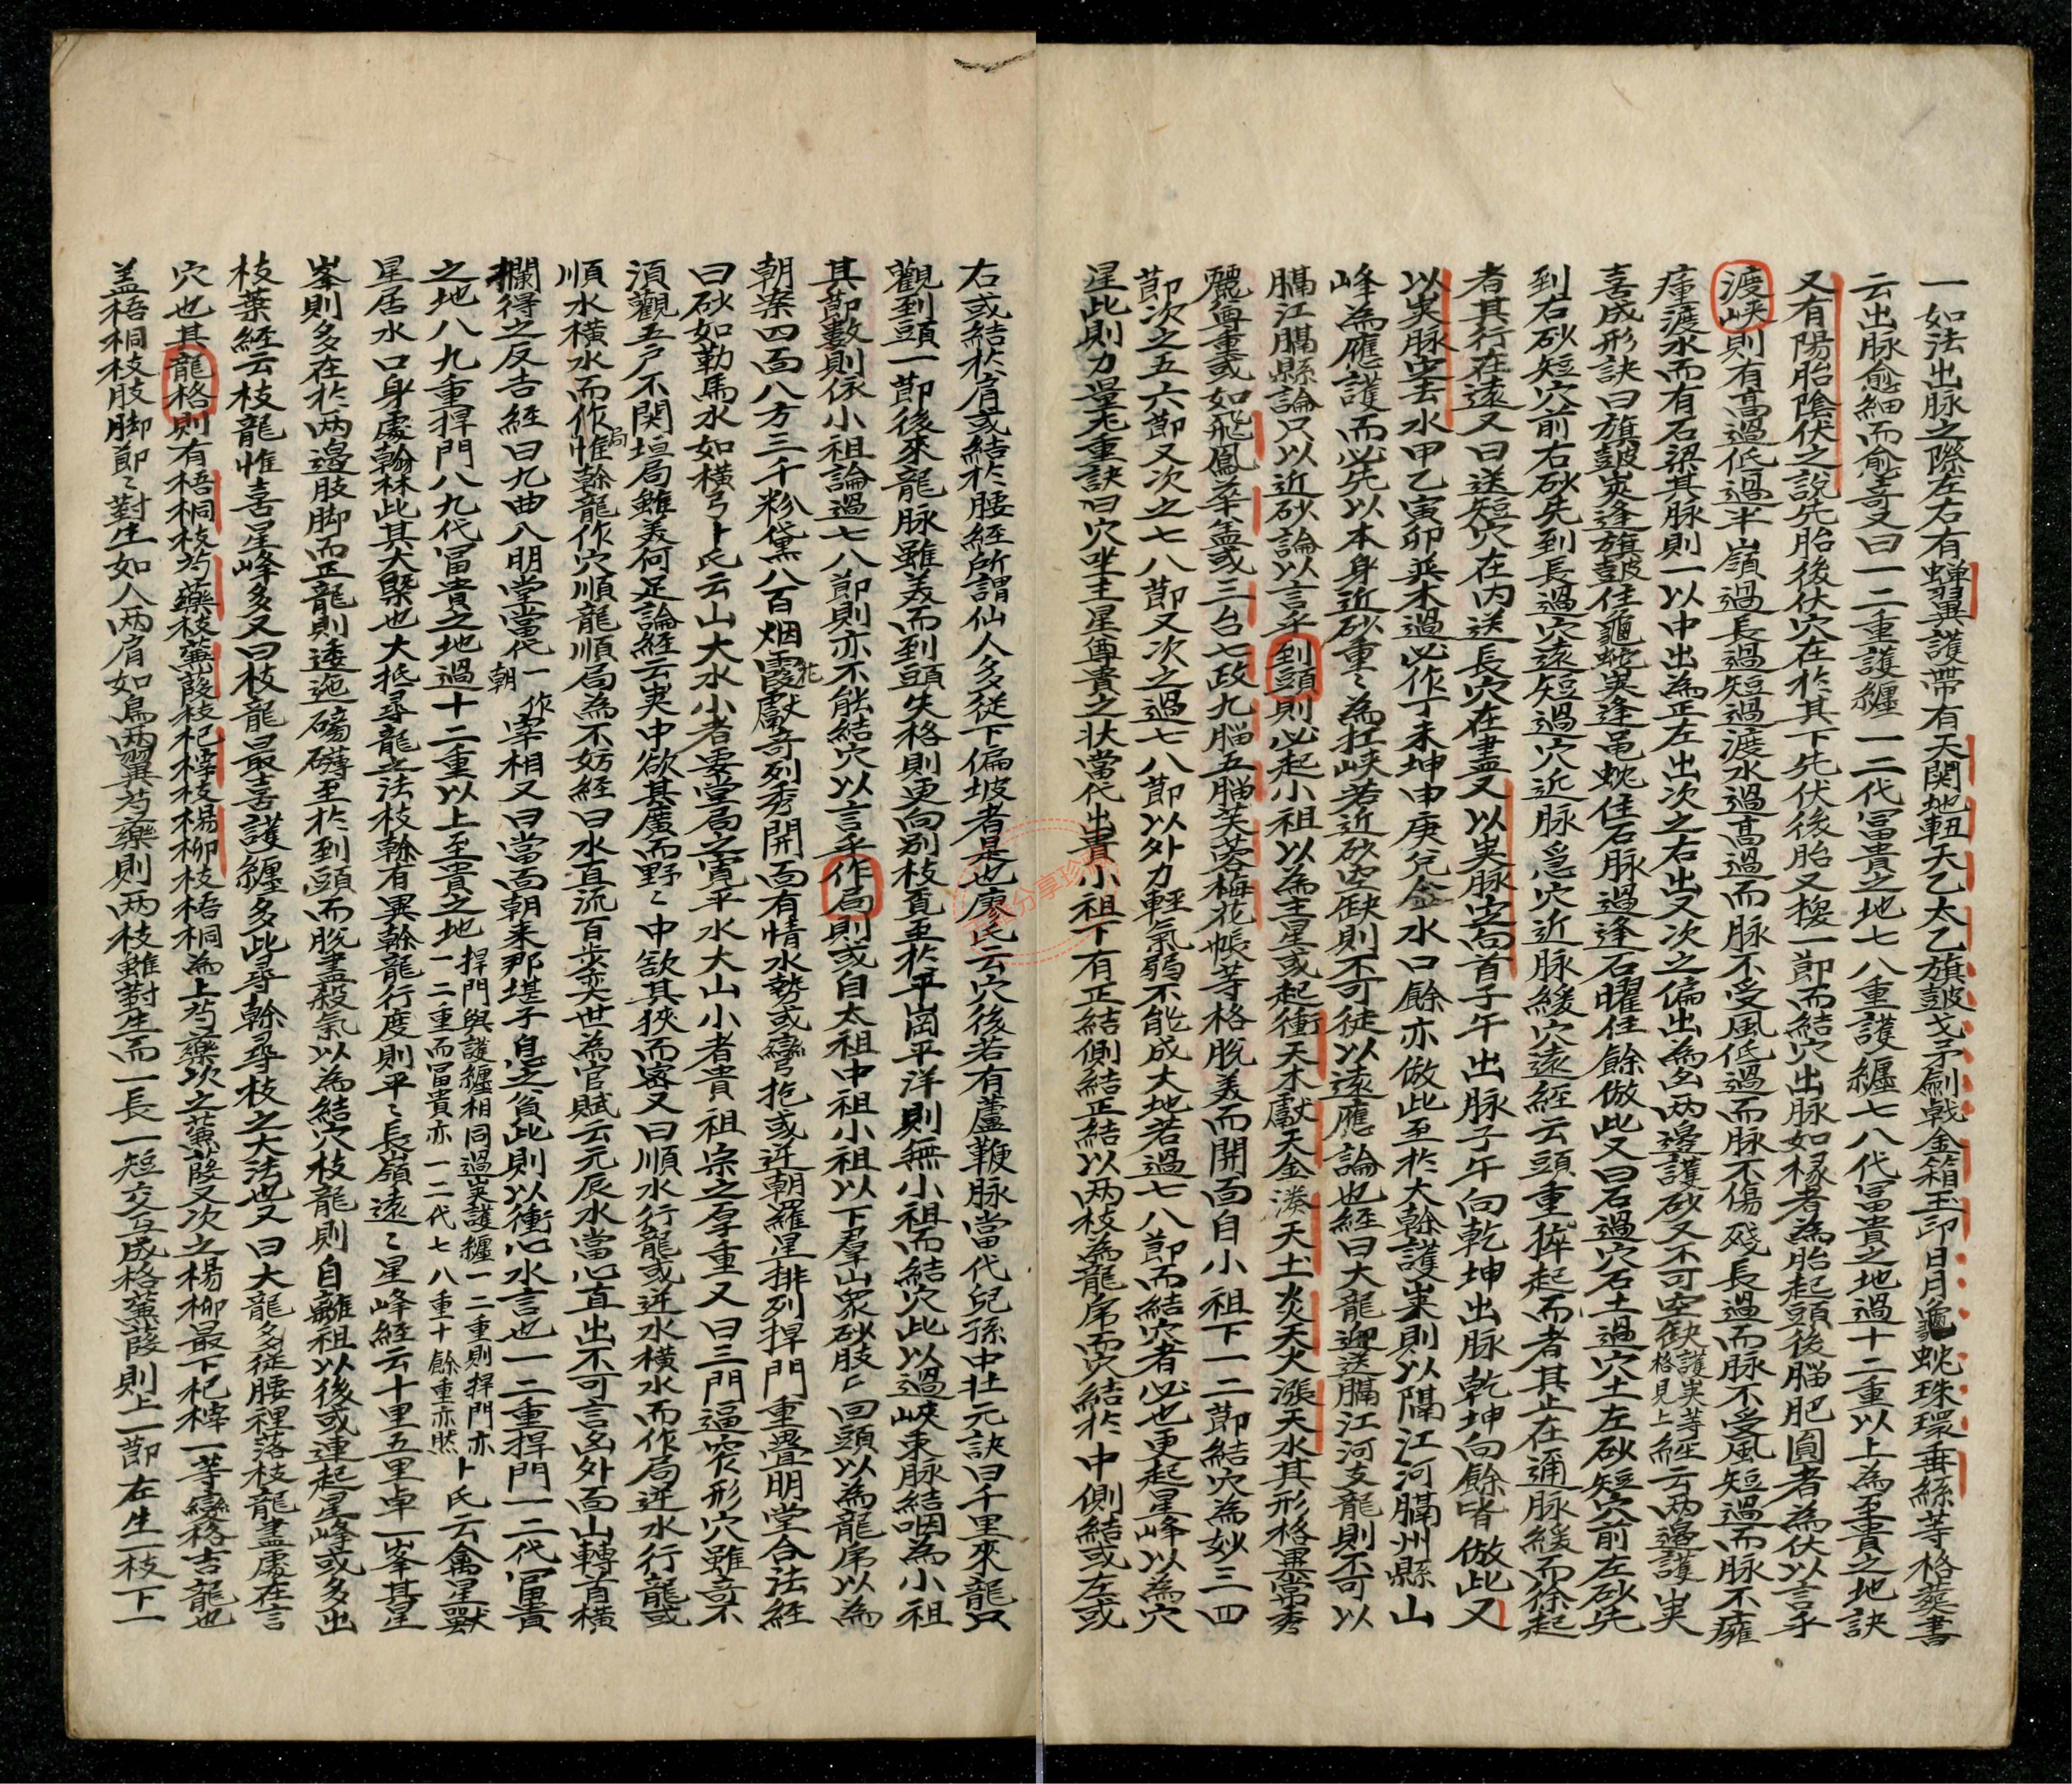 一如法出脉之際左右有蟬翼護帶有天関地軸天乙太乙旗皷戈矛劒戟金箱玉印日月龜蛇珠環垂絲等格葬書
云出脉愈細而愈奇又曰一二重護纏一二代冨貴之地七八重護纏七八代冨貴之地過十二重以上為至貴之地訣
又有陽胎陰伏之說先胎後伏穴在於其下先伏後胎又換一節而結穴出脉如椽者為胎起頭後腦肥圓者為伏以言乎
渡峽則有髙過低過半嶺過長過短過渡水過髙過而脉不受風低過而脉不傷殘長過而脉不受風短過而脉不癰
瘇渡水而有石梁其脉則一以中出為正左出次之右出又次之偏出為名两邉護砂又不可空缺護峽等格見上経云两邉護峽
喜成形訣曰旗皷峽逢旗皷住龜蛇峽逢龜蛇住石脉過逢石曜住餘倣此又曰石過穴石土過穴土左砂短穴前左砂先
到右砂短穴前右砂先到長過穴遠短過穴近脉急穴近脉緩穴遠経云頭重重捽起而者其止在邇脉緩而徐起
者其行在遠又曰送短穴在内送長穴在盡又以峽脉定向首子午出脉子午向乾坤出脉乾坤向餘皆倣此又
以峽脉定去水甲乙寅卯巽木過必作丁未坤申庚兌金水口餘亦倣此至於大幹護峽則以隔江河隔州縣山
峰為應護而必先以本身近砂重〻為扛峽若近砂空缺則不可徒以遠應論也経曰大龍迎送隔江河支龍則不可以
隔江隔縣論只以近砂論以言乎到頭則必起小祖以為主星或起衝天木獻天金湊天土炎天火漲天水其形格異常秀
麗尊重或如飛鳳華盖或三台七政九腦五腦芙蓉梅花帳等格脫美而開面自小祖下一二節結穴為妙三四
節次之五六節又次之七八節又次之過七八節以外力輕氣弱不能成大地若過七八節而結穴者必也更起星峰以為穴
星此則力量尤重訣曰穴坐主星尊貴之狀當代出貴小祖下有正結側結正結以两枝為龍虎而穴結於中側結或左或
右或結於肩或結於腰経所謂仙人多従下偏坡者是也康氏云穴後若有蘆鞭脉當代兒孫中壮元訣曰千里來龍只
觀到頭一節後來龍脉雖美而到頭失格則更向别枝覓至於平崗平洋則無小祖而結穴此以過峽束脉結咽為小祖
其節數則依小祖論過七八節則亦不能結穴以言乎作局則或自太祖中祖小祖以下羣山衆砂肢〻回頭以為龍虎以為
朝案四面八方三千粉黛八百烟花霞獻奇列秀開面有情水勢或彎抱或逆朝羅星排列捍門重疊明堂合法経
曰砂如勒馬水如橫弓卜氏云山大水小者要堂局之寬平水大山小者貴祖宗之厚重又曰三門逼窄形穴雖奇不
須觀五户不関垣局雖美何足論経云峽中欲其廣而野〻中欲其狹而密又曰順水行龍或逆水橫水而作局逆水行龍或
順水橫水而作局惟幹龍作穴順龍順局為不妨経曰水直流百步奕世為官賦云元辰水當心直出不可言凶外面山轉首橫
攔得之反吉経曰九曲入明堂當代一作朝宰相又曰當面朝来那堪子息之貧此則以衝心水言也一二重捍門一二代冨貴
之地八九重捍門八九代冨貴之地過十二重以上至貴之地捍門與護纏相同過峽護纏一二重則捍門亦一二重而冨貴亦一二代七八重十餘重亦然卜氏云禽星獸
星居水口身處翰林此其大槩也大抵尋龍之法枝幹有異幹龍行度則平〻長嶺遠〻星峰経云十里五里卓一峯其星
峯則多在於两邉肢脚而正龍則逶迤礴礡至於到頭而脫盡殺氣以為結穴枝龍則自離祖以後或連起星峰或多出
枝葉経云枝龍惟喜星峰多又曰枝龍最喜護纏多此尋幹尋枝之大法也又曰大龍多從腰裡落枝龍盡處在言
穴也其龍格則有梧桐枝芍藥枝蒹葭枝杞梓枝楊柳枝梧桐為上芍藥次之蒹葭又次之楊柳最下杞梓一等變格吉龍也
盖梧桐枝肢脚節〻對生如人两肩如鳥两翼芍藥則两枝雖對生而一長一短交互成格蒹葭則上一節左生一枝下一